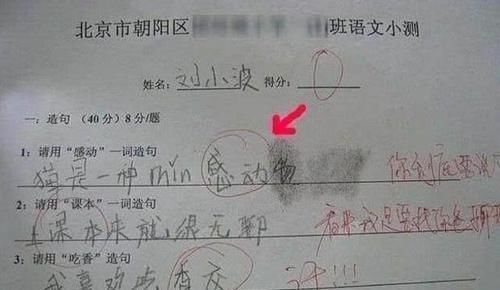 北京市朝阳区 班语文小测
姓名：刘小波 得分：0
一：造句（40分）8分/题
1：请用“感动”一词造句
猫是一种min感动物 你到底要说
2：请用“课本”一词造句
上课本来就很无聊 看来我是要找你爸聊聊
3：请用“吃香”一词造句
我喜欢吃香 !!!